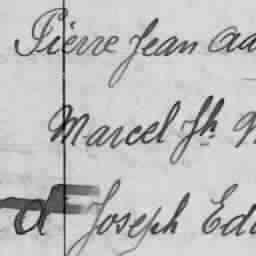 Pierre Jean
Marcel Jh
d Joseph